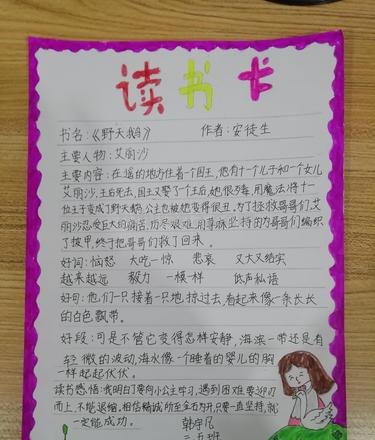 读书卡
书名：《野天鹅》 作者：安徒生
主要人物：艾丽沙
主要内容：在遥的地方住着一个国王，他有十一个儿子和一个女儿
艾丽沙，王后死去，国王又娶了个王后，她很歹毒，用魔法将十一
位王子变成了野天鹅，公主也被她变得很丑。为了拯救哥哥们，艾
丽沙忍受巨大的痛苦，历尽艰难，用荨麻坚持的为哥哥们编织
了披甲，终于把哥哥们救了回来。
好词：恼怒 大吃一惊 悲哀 又大又结实
越来越远 毅力 一模一样 低声私语
好句：他们一只接着一只地掠过去，看起来像一条长长
的白色飘带。
好段：可是不管它变得怎样安静，海滨一带还是有
轻微的波动，海水像一个睡着的婴儿的胸
一样起起伏伏。
读书感悟：我明白了要向小公主学习，遇到困难要迎刃
而上，不能退缩。相信精诚所至金石为开，只要一直坚持，就
一定能成功。
韩宇凡
二五班